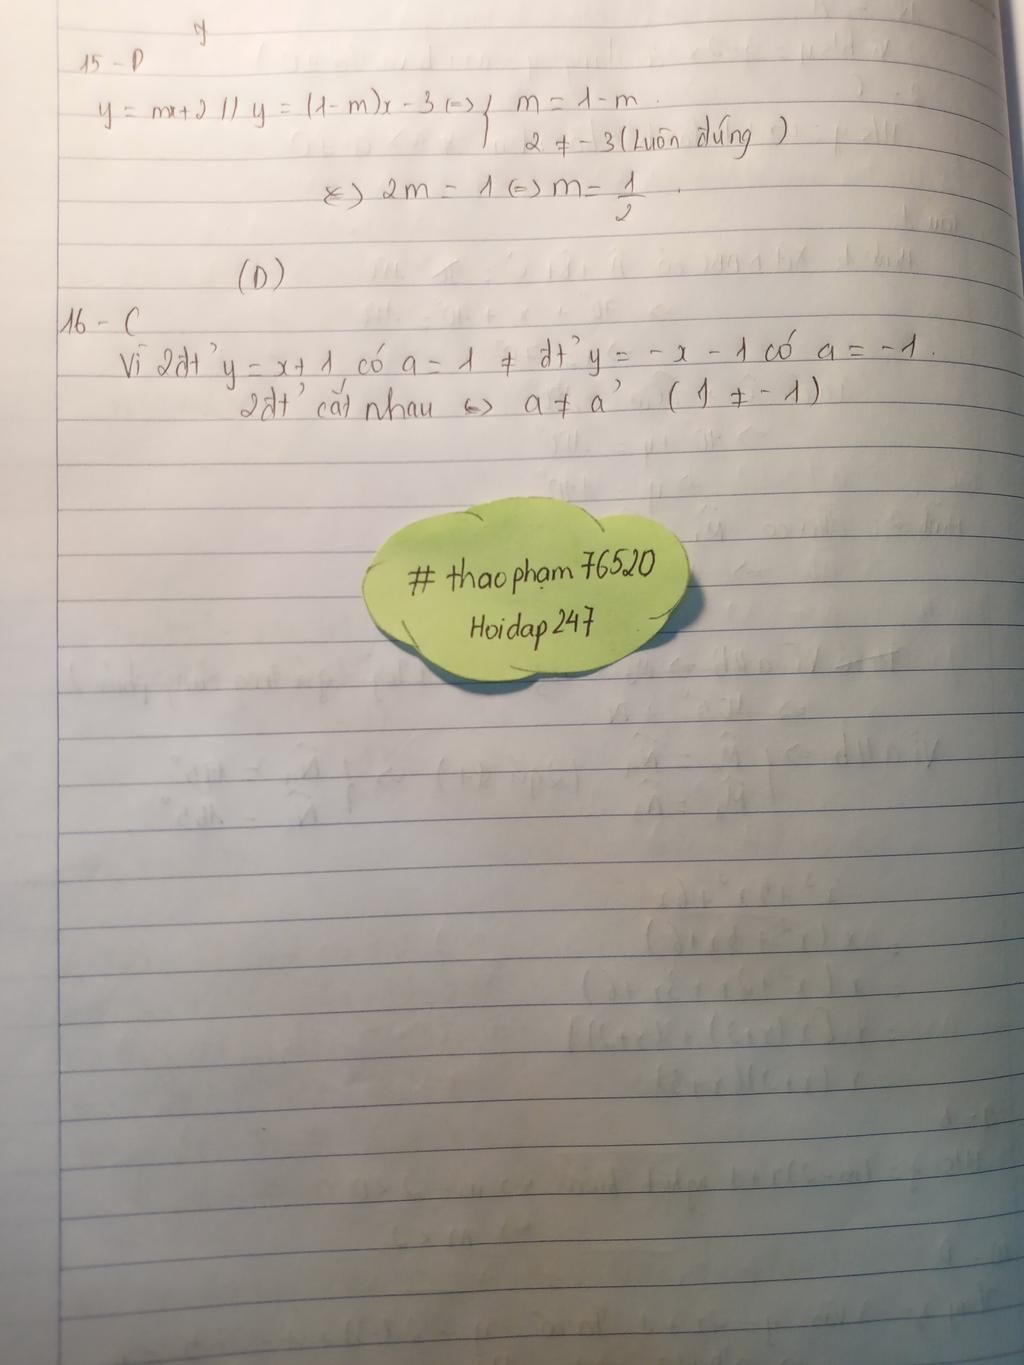 15 - D
y = mx + 2 // y = (1 - m)x - 3 <=> { m = 1 - m.
2 ≠ - 3 (Luôn đúng)
<=> 2m = 1 <=> m = 1/2.
(D)
16 - C
Vì 2đt' y = x + 1 có a = 1 ≠ đt' y = - x - 1 có a = - 1.
2đt' cắt nhau <=> a ≠ a' (1 ≠ - 1)
# thaophạm76520
Hoidap247